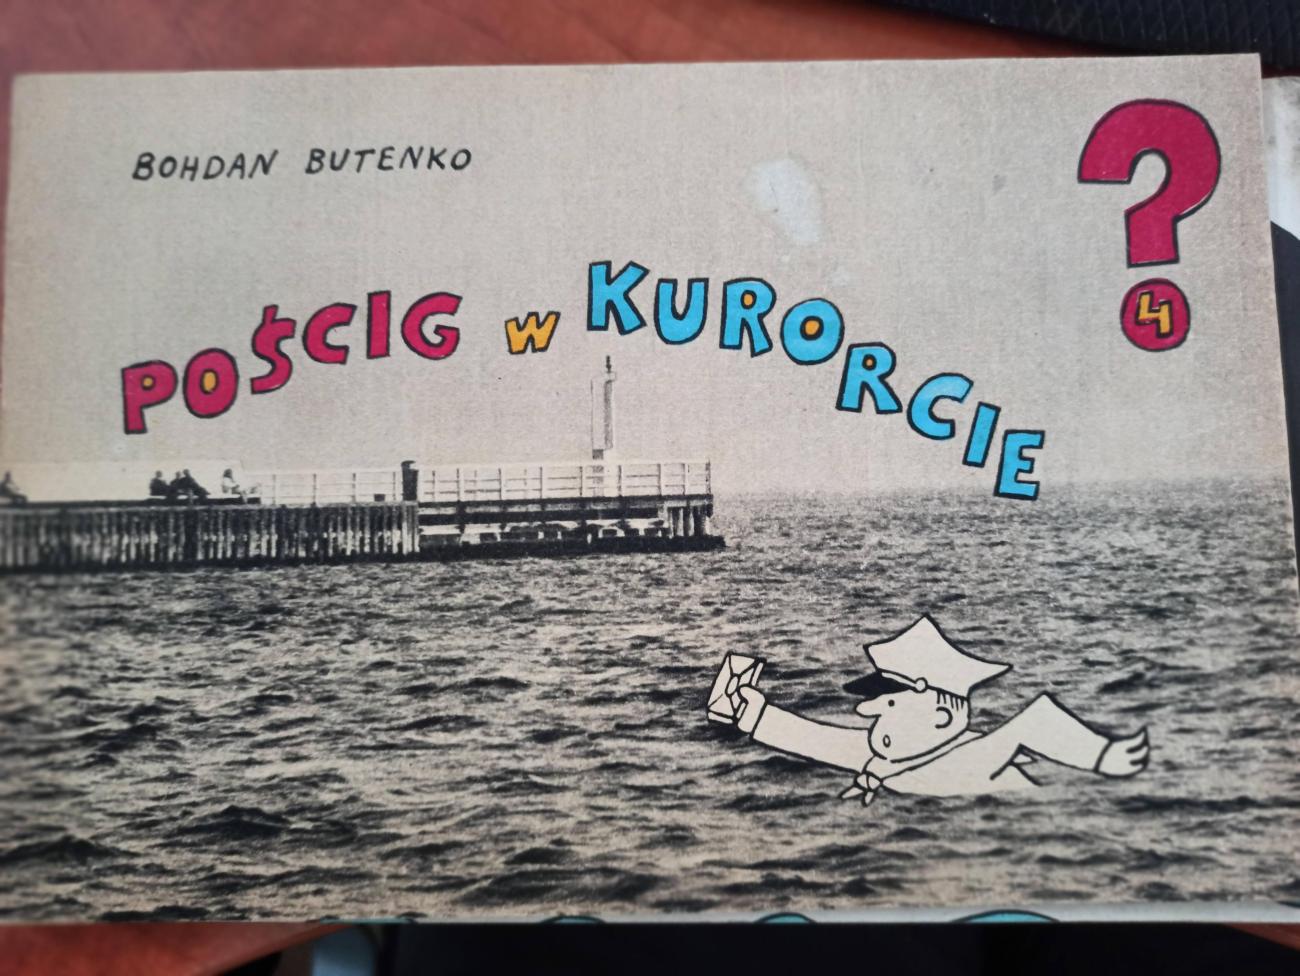 BOHDAN BUTENKO
?
4
POŚCIG w KURORCIE